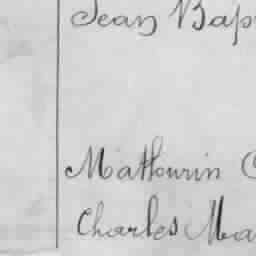 Jean Bap
Mathourin C
Charles Ma